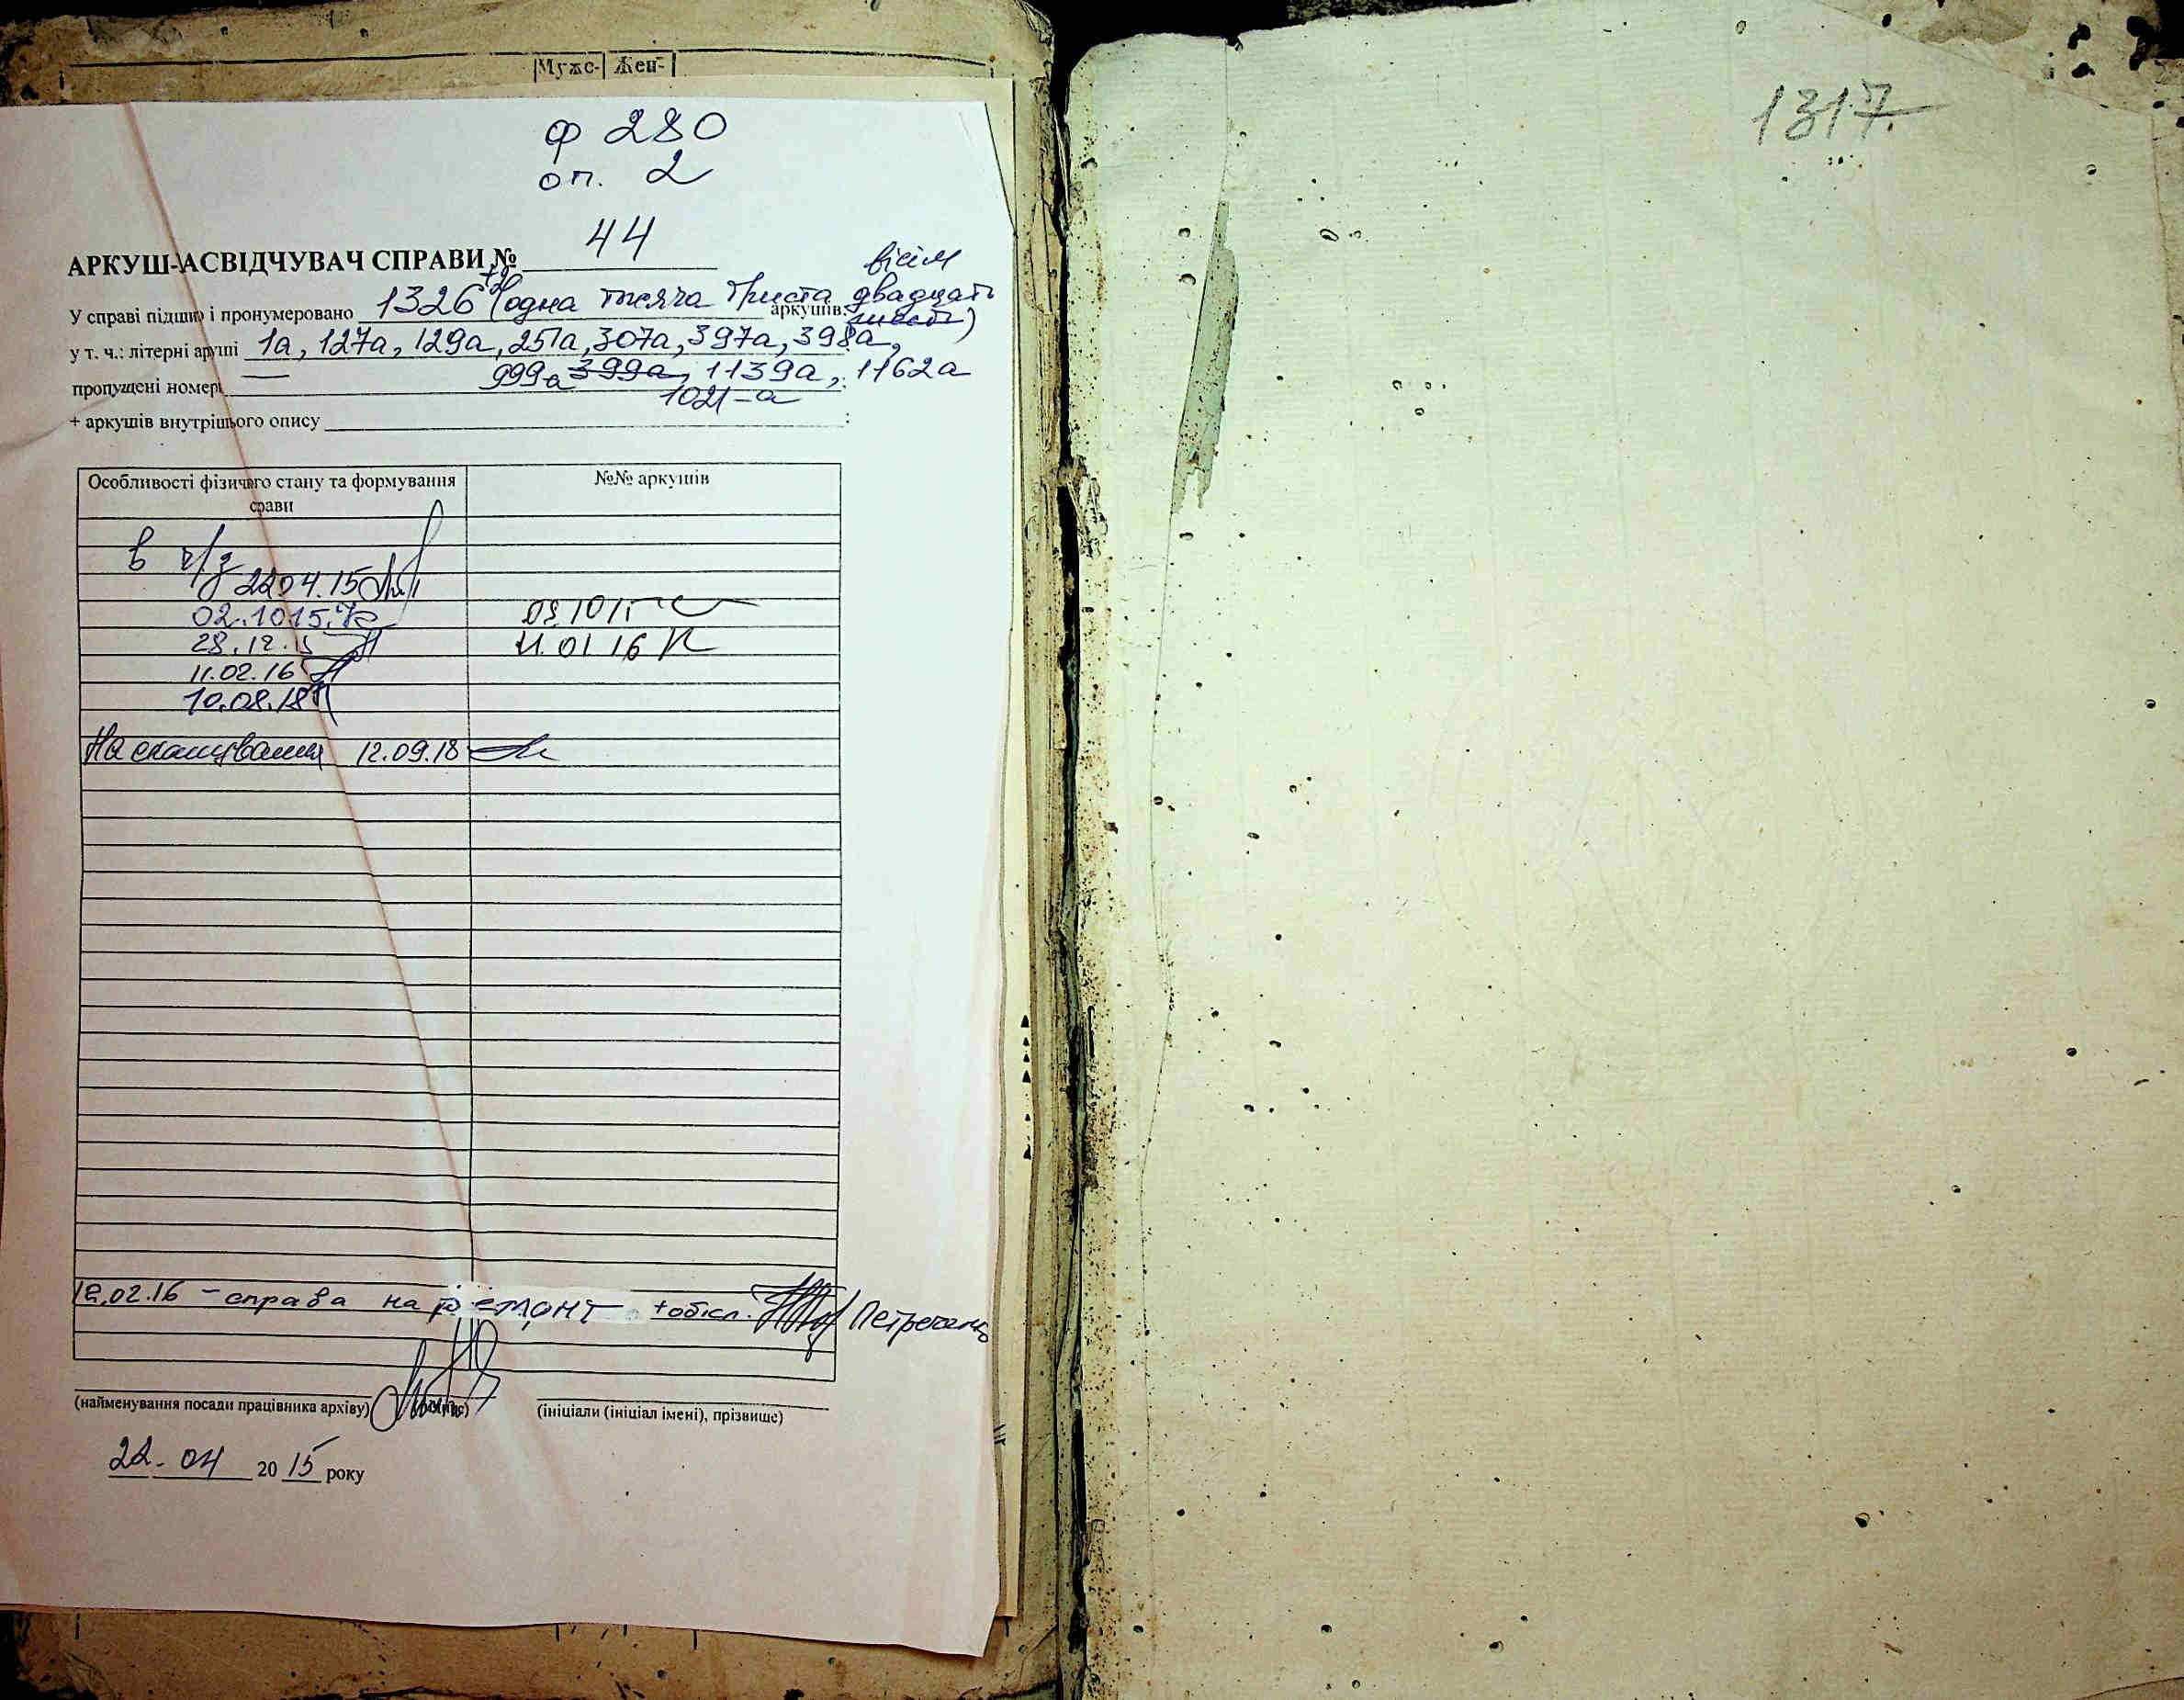 Мужс- Жен-
ф 280
оп. 2
АРКУШ-АСВІДЧУВАЧ СПРАВИ № 44
вісім
У справі підши і пронумеровано 1326 +2 (одна тисяча триста двадцять аркушів: шість)
у т. ч.: літерні аруші 1а, 127а, 129а, 251а, 307а, 397а, 398а,
999а 399а, 1139а, 1162а
пропущені номер — ;
1021-а
+ аркушів внутрішього опису :
Особливості фізичого стану та формування срави №№ аркушів
в ч/з
22 04.15
02.10 15
28.12.15 11.01 16
11.02.16
10.08.18
На сканування 12.09.18
12.02.16 – справа на ремонт + обкл. Петренко
(найменування посади працівника архіву) (ініціали (ініціал імені), прізвище)
22. 04 20 15 року
1317.